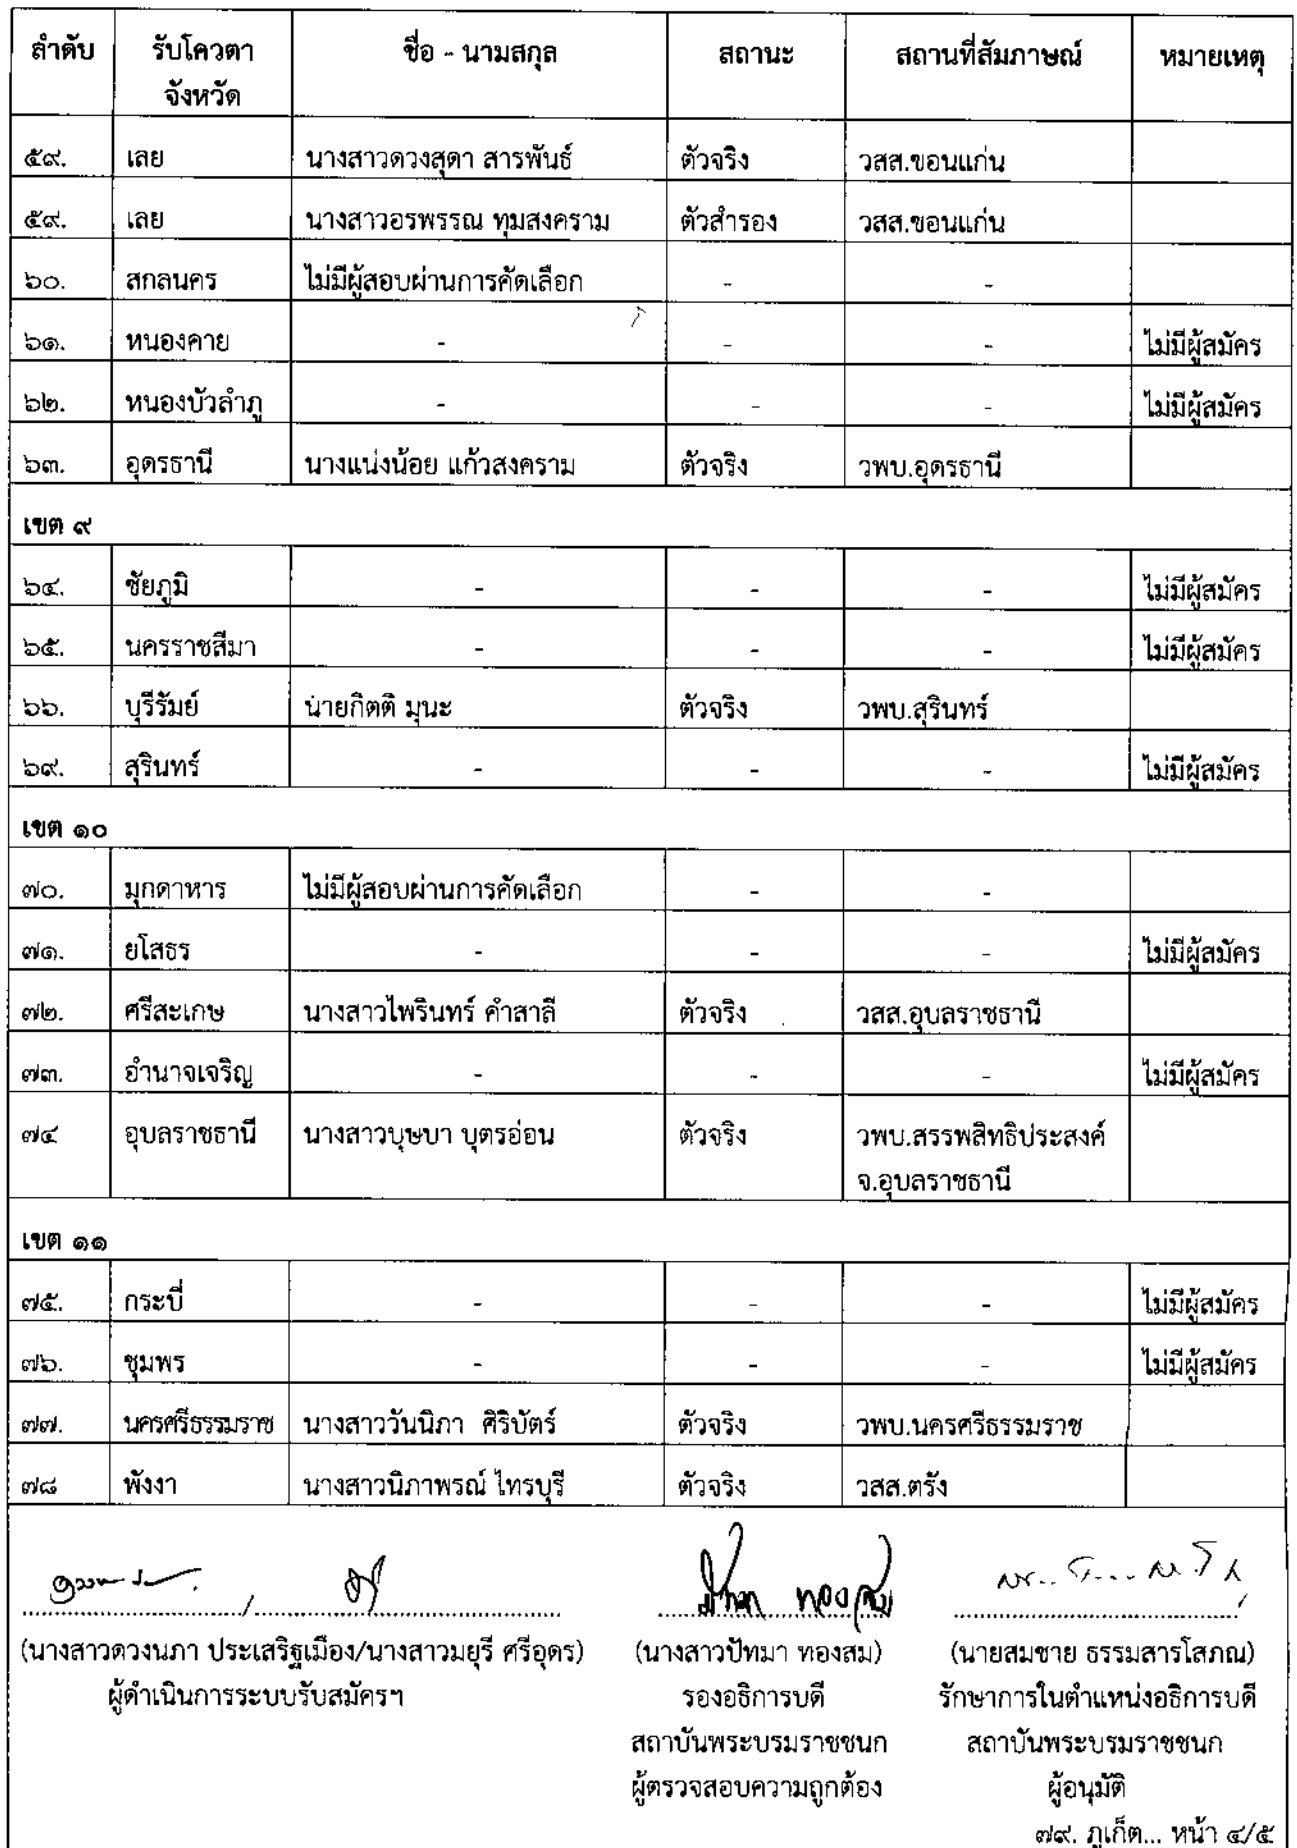 ลำดับ รับโควตา ชื่อ - นามสกุล สถานะ สถานที่สัมภาษณ์ หมายเหตุ
จังหวัด
๕๙. เลย นางสาวดวงสุดา สารพันธ์ ตัวจริง วสส.ขอนแก่น
๕๙. เลย นางสาวอรพรรณ ทุมสงคราม ตัวสำรอง วสส.ขอนแก่น
๖๐. สกลนคร ไม่มีผู้สอบผ่านการคัดเลือก - -
๖๑. หนองคาย - - - ไม่มีผู้สมัคร
๖๒. หนองบัวลำภู - - - ไม่มีผู้สมัคร
๖๓. อุดรธานี นางแน่งน้อย แก้วสงคราม ตัวจริง วพบ.อุดรธานี
เขต ๙
๖๔. ชัยภูมิ - - - ไม่มีผู้สมัคร
๖๕. นครราชสีมา - - - ไม่มีผู้สมัคร
๖๖. บุรีรัมย์ นายกิตติ มุนะ ตัวจริง วพบ.สุรินทร์
๖๙. สุรินทร์ - - - ไม่มีผู้สมัคร
เขต ๑๐
๗๐. มุกดาหาร ไม่มีผู้สอบผ่านการคัดเลือก - -
๗๑. ยโสธร - - - ไม่มีผู้สมัคร
๗๒. ศรีสะเกษ นางสาวไพรินทร์ คำสาลี ตัวจริง วสส.อุบลราชธานี
๗๓. อำนาจเจริญ - - - ไม่มีผู้สมัคร
๗๔ อุบลราชธานี นางสาวบุษบา บุตรอ่อน ตัวจริง วพบ.สรรพสิทธิประสงค์
จ.อุบลราชธานี
เขต ๑๑
๗๕. กระบี่ - - - ไม่มีผู้สมัคร
๗๖. ชุมพร - - - ไม่มีผู้สมัคร
๗๗. นครศรีธรรมราช นางสาววันนิภา ศิริบัตร์ ตัวจริง วพบ.นครศรีธรรมราช
๗๘ พังงา นางสาวนิภาพรณ์ ไทรบุรี ตัวจริง วสส.ตรัง
(นางสาวดวงนภา ประเสริฐเมือง/นางสาวมยุรี ศรีอุดร) (นางสาวปัทมา ทองสม) (นายสมชาย ธรรมสารโสภณ)
ผู้ดำเนินการระบบรับสมัครฯ รองอธิการบดี รักษาการในตำแหน่งอธิการบดี
สถาบันพระบรมราชชนก สถาบันพระบรมราชชนก
ผู้ตรวจสอบความถูกต้อง ผู้อนุมัติ
๗๙. ภูเก็ต... หน้า ๔/๕